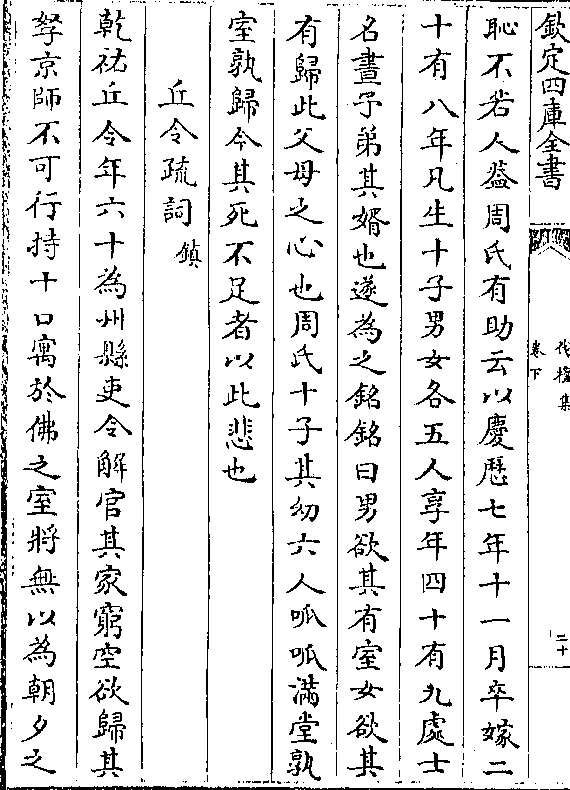 欽定四庫全書
伐檀集
卷下
二十
恥不若人蓋周氏有助云以慶歷七年十一月卒嫁二
十有八年凡生十子男女各五人享年四十有九處士
名晝子弟其婿也遂為之銘銘曰男欲其有室女欲其
有歸此父母之心也周氏十子其幼六人呱呱滿堂孰
室孰歸今其死不足者以此悲也
丘令疏詞鎮
乾祐丘令年六十為州縣吏今解官其家窮空欲歸其
孥京師不可行持十口寓於佛之室將無以為朝夕之